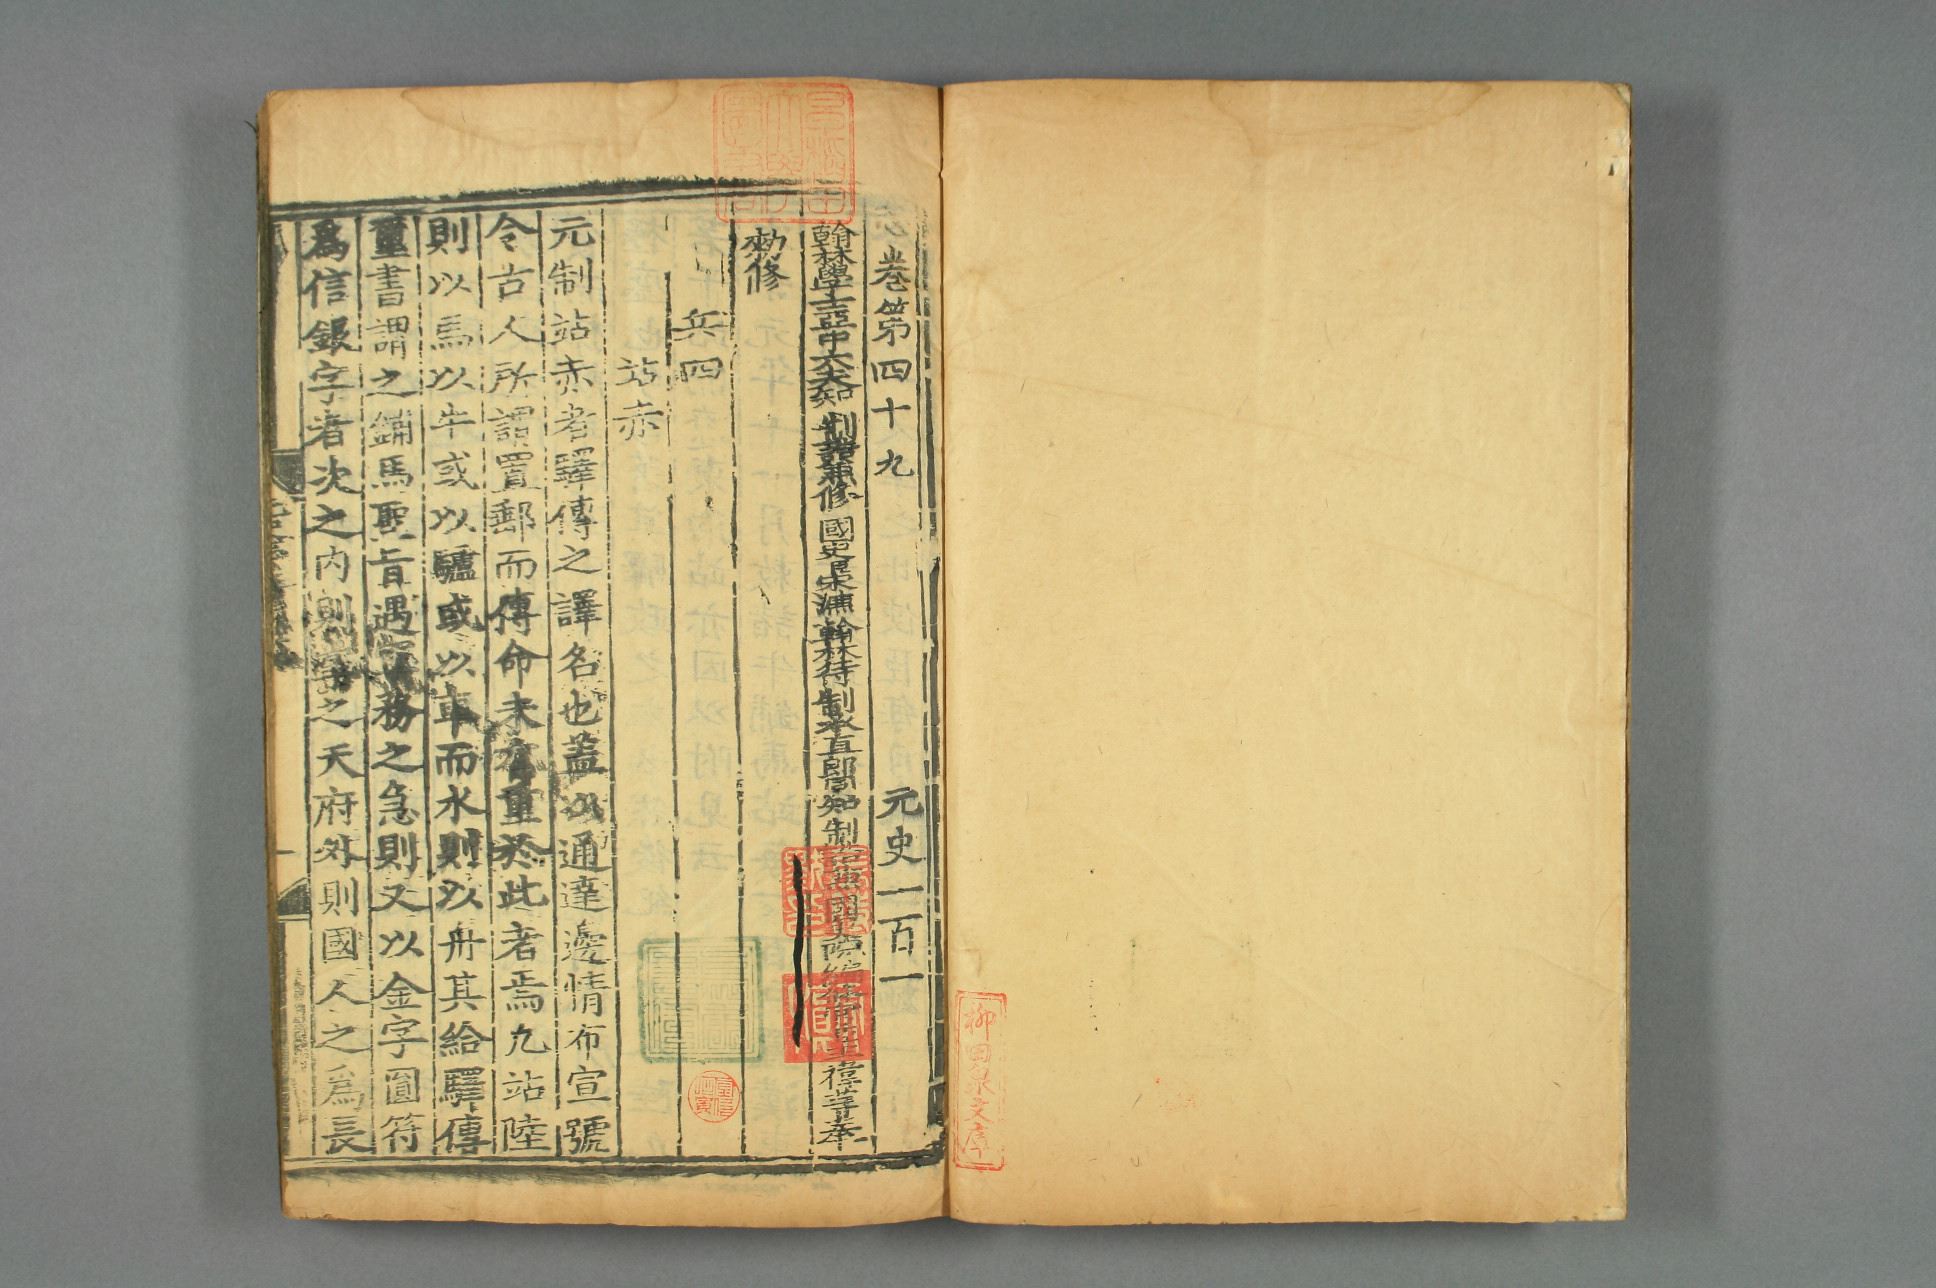 志卷第四十九 元史一百一
翰林學士亞中大夫知 制誥兼修 國史臣宋濂翰林待制承直郎同知制誥兼國史院編修官臣王禕等奉
勑修
兵四
站赤
元制站赤者驛傳之譯名也蓋以通達邊情布宣號
令古人所謂置郵而傳命未有重於此者焉凡站陸
則以馬以牛或以驢或以車而水則以舟其給驛傳
璽書謂之鋪馬聖旨遇軍務之急則又以金字圓符
爲信銀字者次之內則掌之天府外則國人之爲長
柳田泉文庫